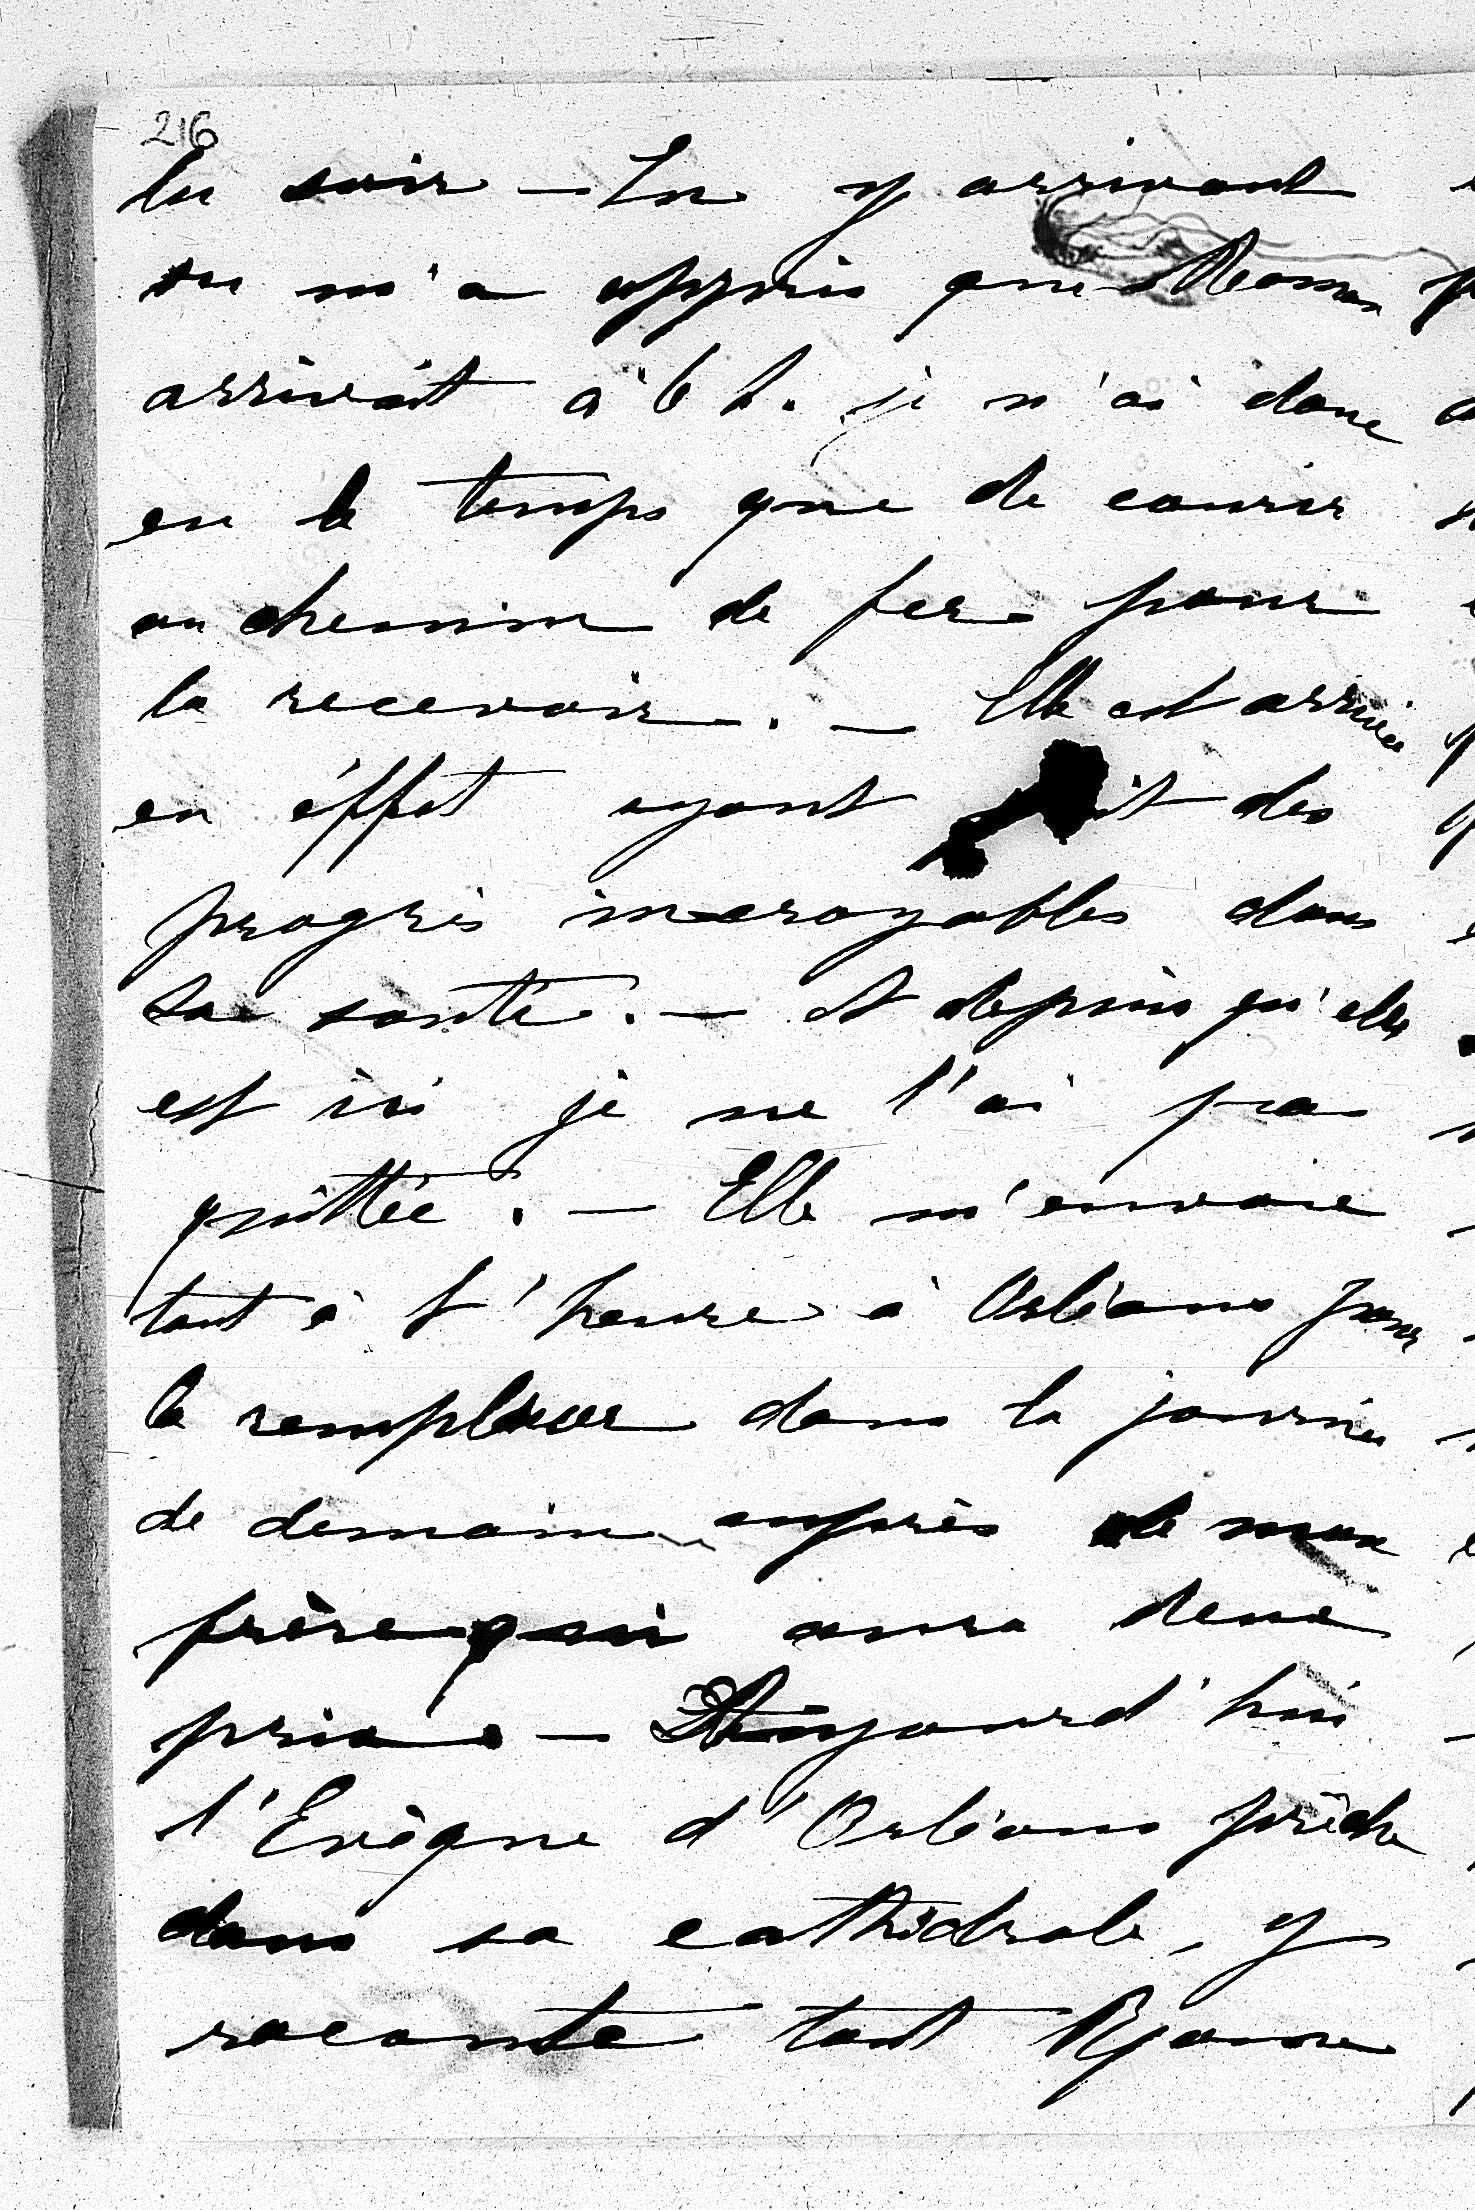 216
du soir — En y arrivant
on m'a appris que Maman
arrivait à 6 h. je n'ai donc
eu le temps que de courir
au chemin de fer pour
la recevoir. — Elle est arrivée
en éffet ayant fait des
progrès incroyables dans
sa santé. — et depuis qu'elle
est ici je ne l'ai pas
quittée. — Elle m'envoie
tout à l'heure à Orléans pour
la remplacer dans la journée
de demain auprès de mon
frère qui aura deux
prix — Aujourd'hui
l'Evèque d'Orléans prêche
dans sa cathédrale, y
raconte tout